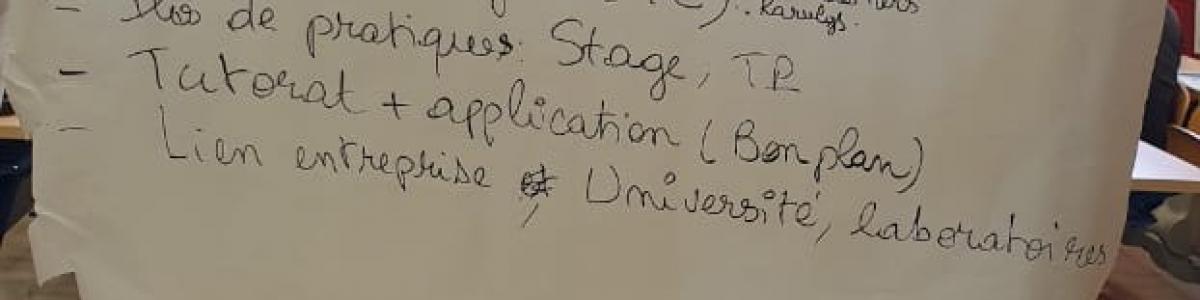 - Plus de pratiques: Stage, TP
- Tutorat + application (Bon plan)
- Lien entreprise et, Université, laboratoires